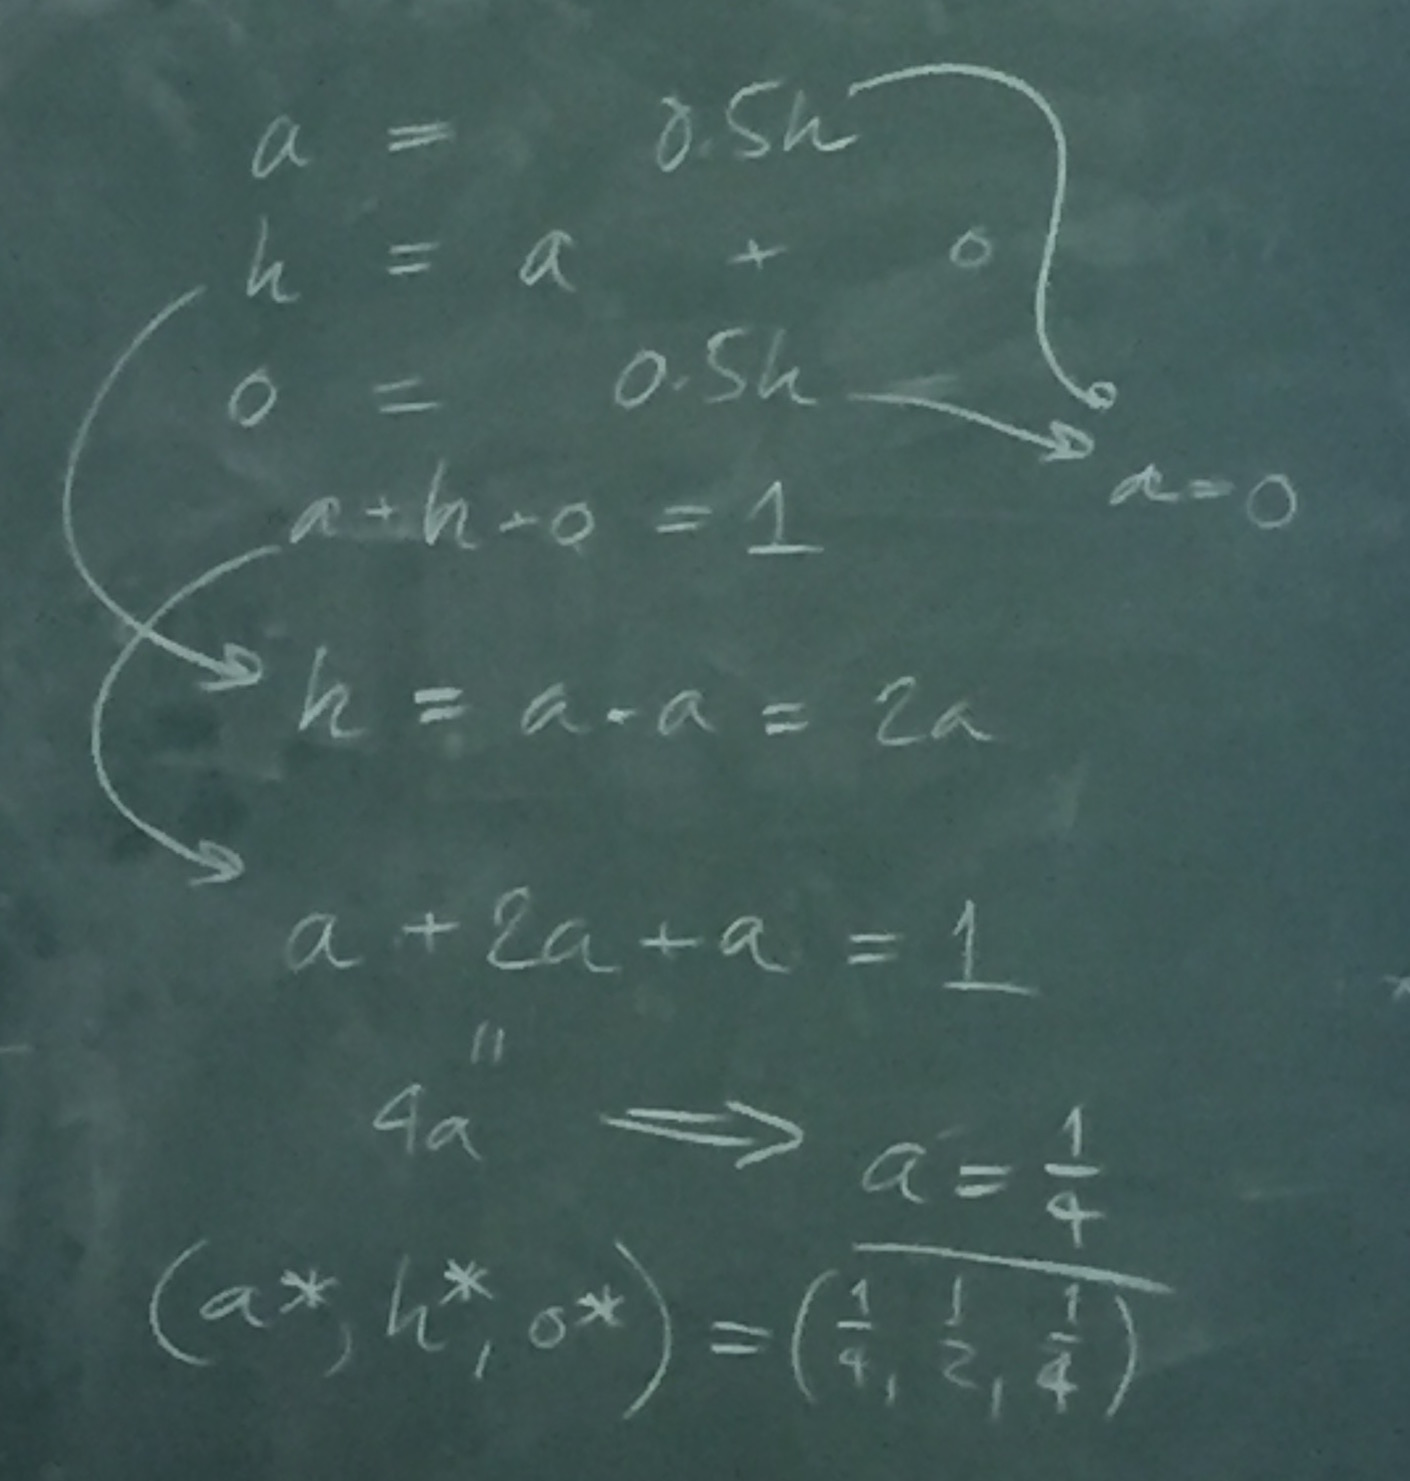 a = 0.5h
h = a + o
o = 0.5h
a = o
a + h + o = 1
h = a + a = 2a
a + 2a + a = 1
"
4a ⟹ a = 1/4
(a*, h*, o*) = (1/4, 1/2, 1/4)